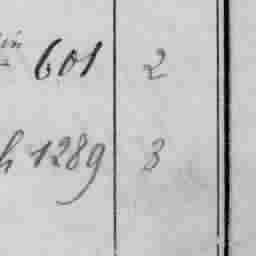 601 2
h 1289 3